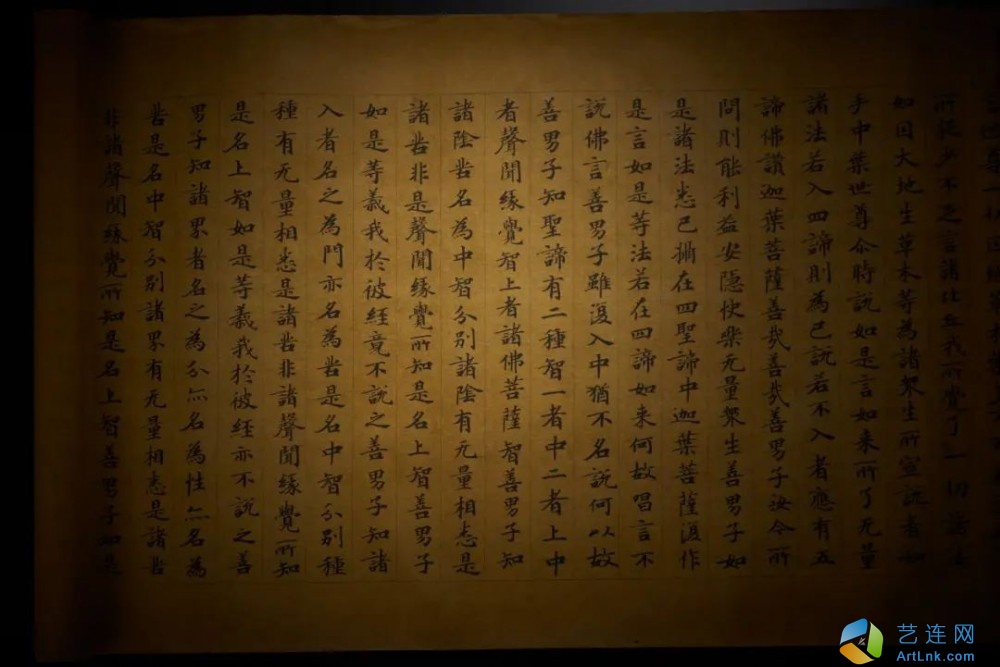 不足言諸比丘我所覺了一切諸法
如因大地生草木等為諸眾生所宣說者如
手中葉世尊尒時說如是言如来所了无量
諸法若入四諦則為已說若不入者應有五
諦佛讚迦葉菩薩善哉善哉善男子汝今所
問則能利益安隱快樂无量眾生善男子如
是諸法悉已攝在四聖諦中迦葉菩薩復作
是言如是等法若在四諦如来何故唱言不
說佛言善男子雖復入中猶不名說何以故
善男子知聖諦有二種智一者中二者上中
者聲聞緣覺智上者諸佛菩薩智善男子知
諸陰苦名為中智分別諸陰有无量相悉是
諸苦非是聲聞緣覺所知是名上智善男子
如是等義我於彼經竟不說之善男子知諸
入者名之為門亦名為苦是名中智分別種
種有无量相悉是諸苦非諸聲聞緣覺所知
是名上智如是等義我於彼經亦不說之善
男子知諸界者名之為分亦名為性亦名為
苦是名中智分別諸界有无量相悉是諸苦
非諸聲聞緣覺所知是名上智善男子如是
艺连网
ArtLnk.com